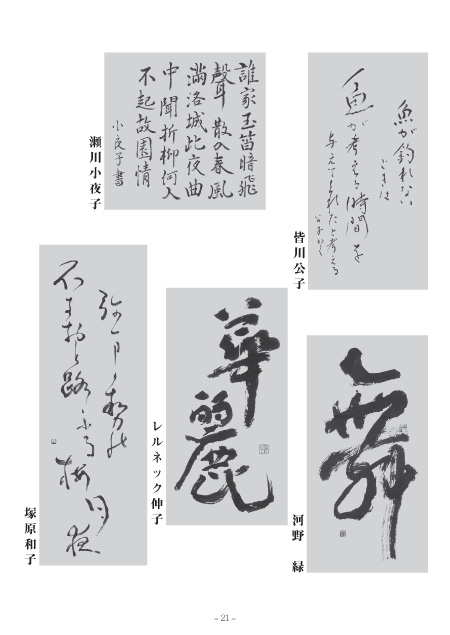 魚が釣れない
ときは
魚が考える時間を
与えてくれたと考える
公子かく
皆川公子
誰家玉笛暗飛
聲散入春風
滿洛城此夜曲
中聞折柳何人
不起故園情
小夜子書
瀬川小夜子
舞
河野 緑
華麗
レルネック伸子
塚原和子
– 21 –